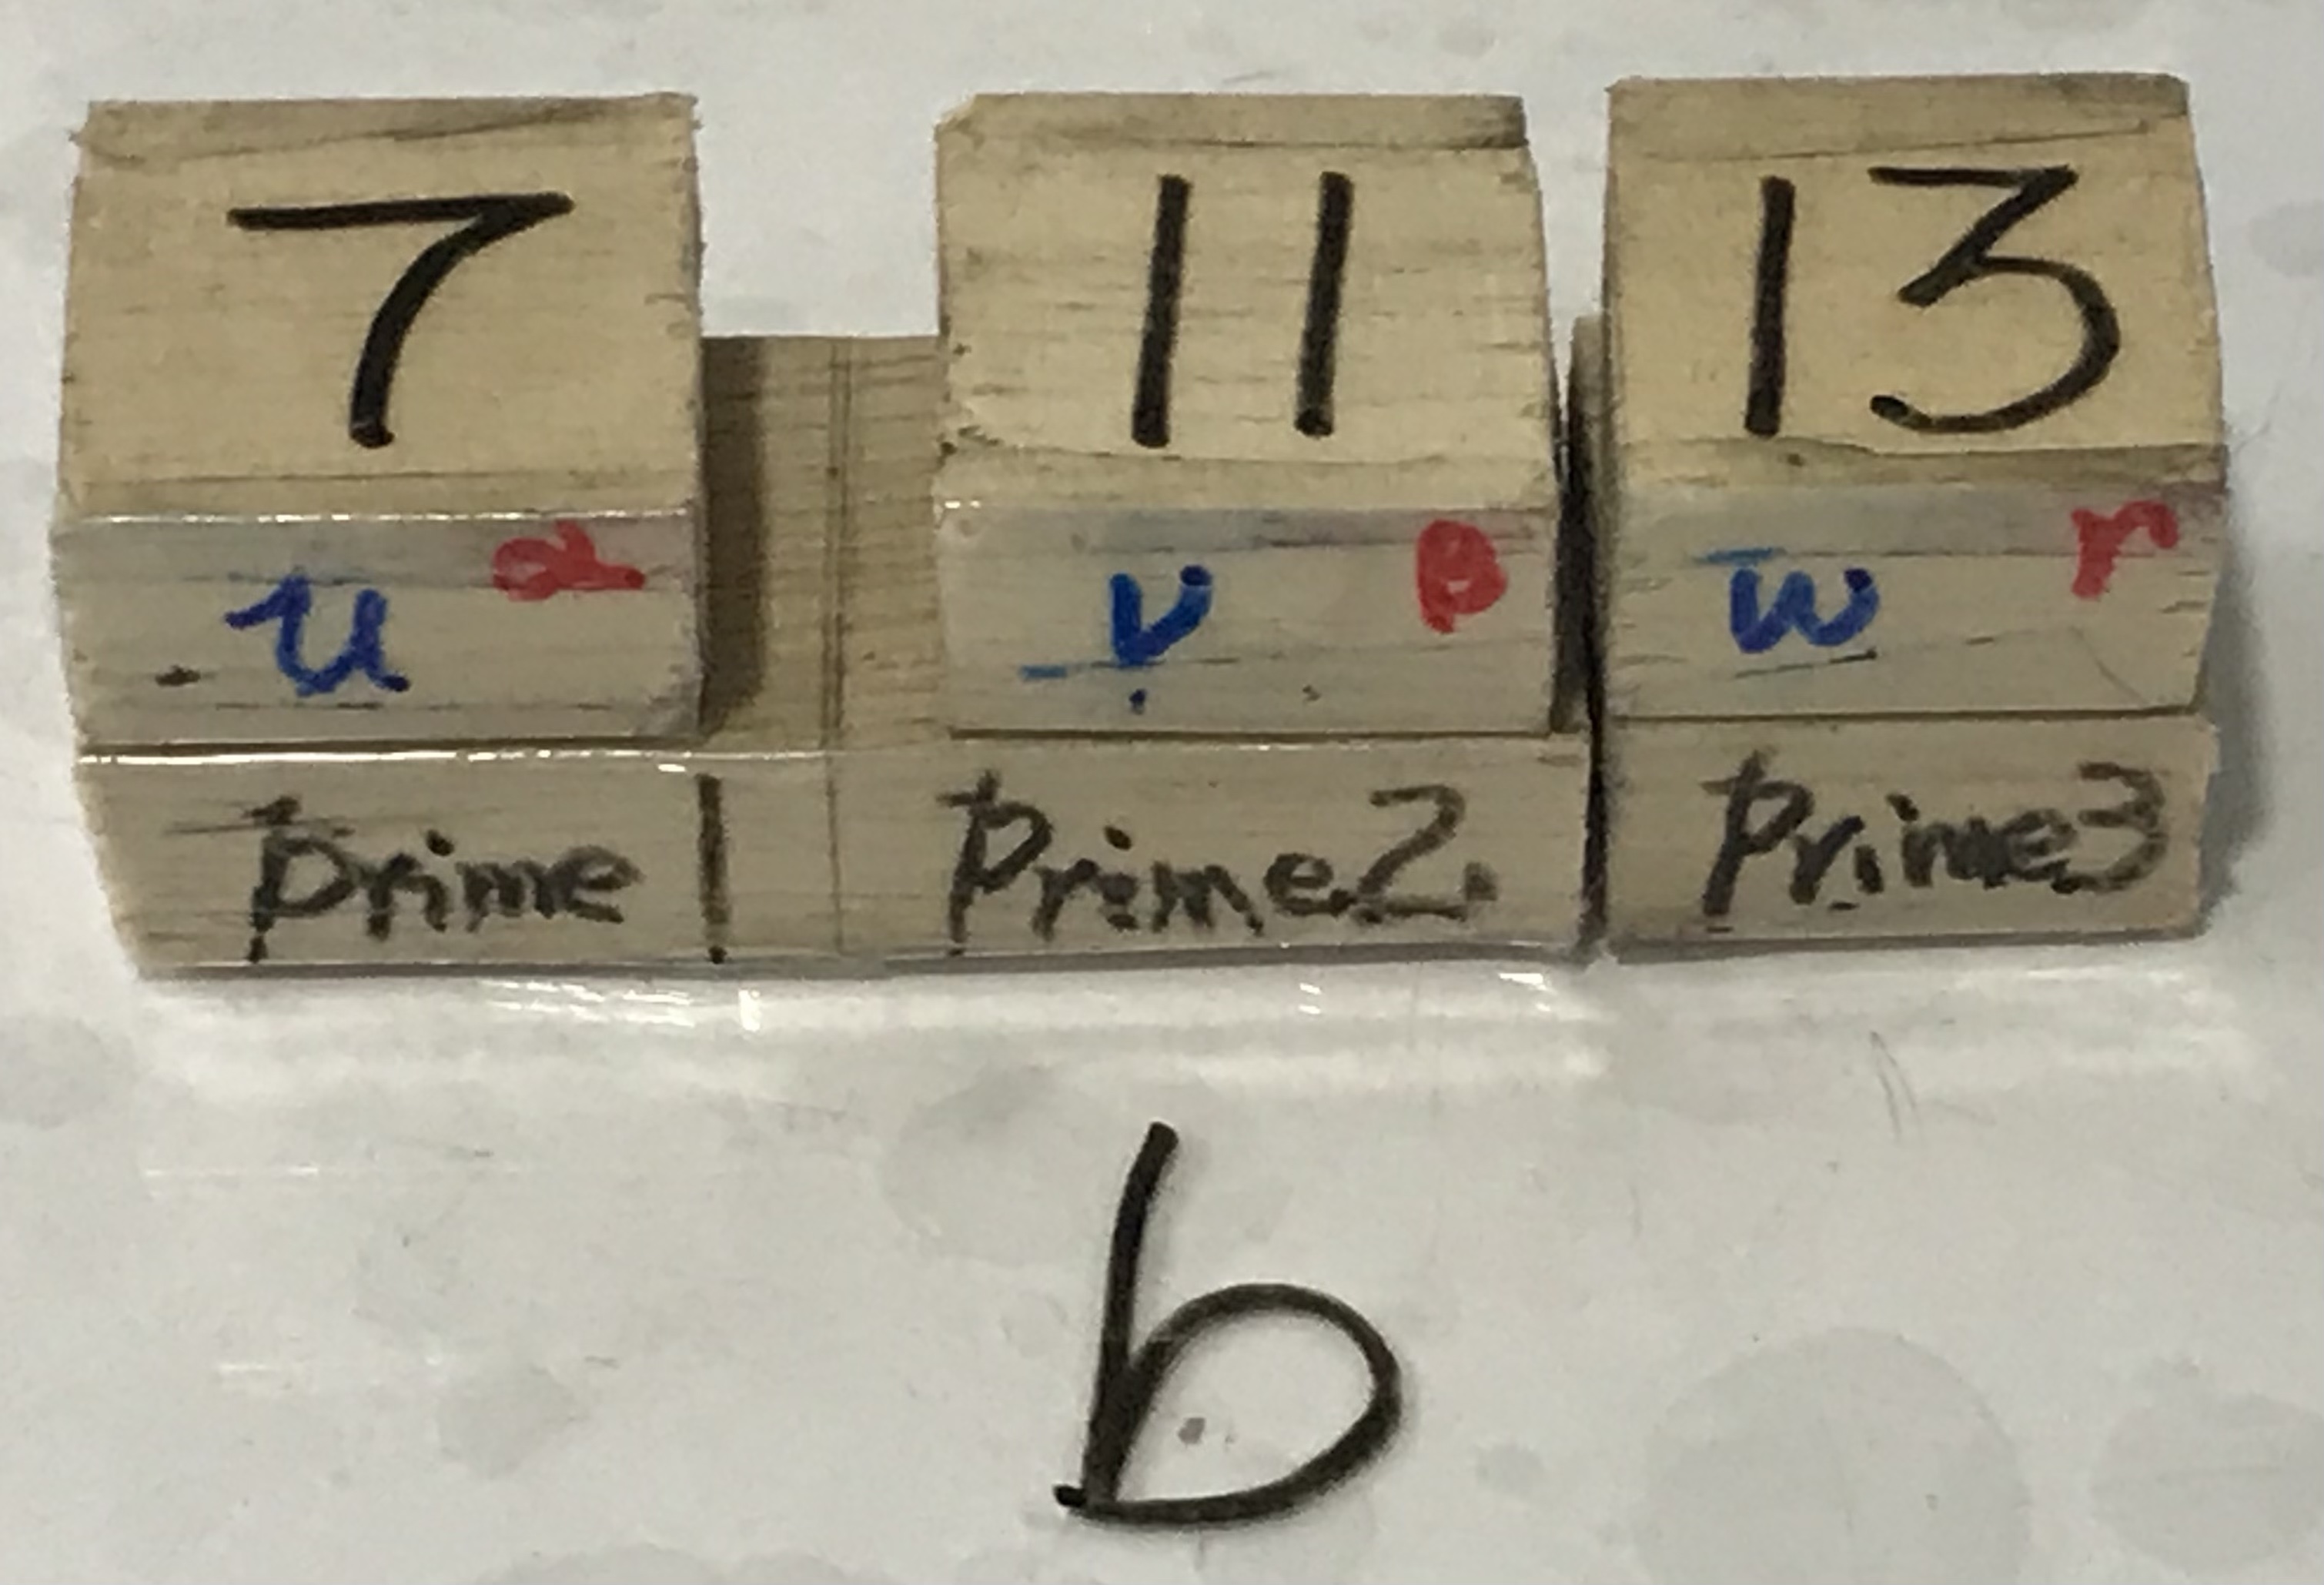 7 11 13
u α v β w r
Prime 1 Prime2 Prime3
b